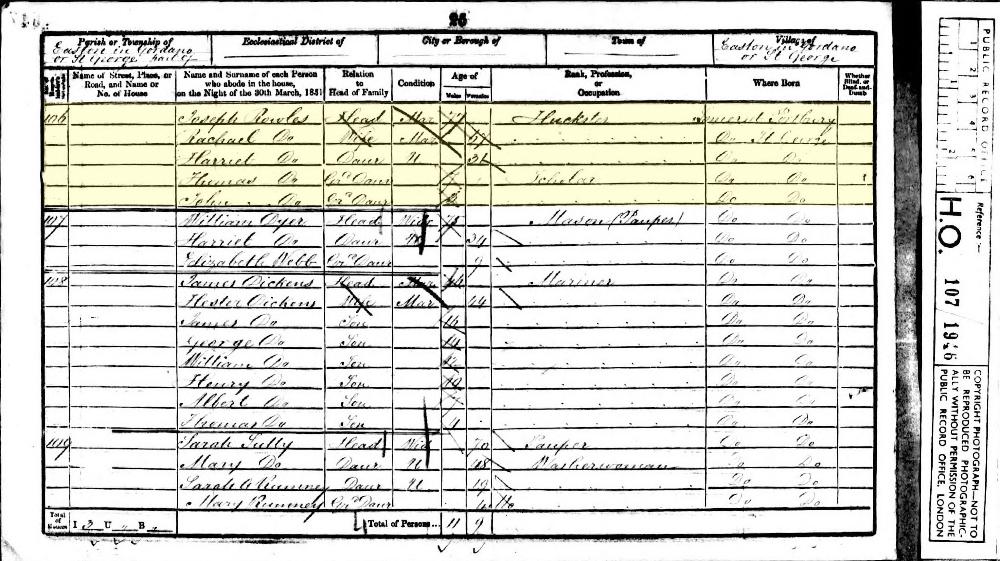 26
Parish or Township of
Ecclesiastical District of
City or Borough of
Town of
Village of
Easton in Gordano
or St George part of
Easton in Gordano
or St George
Name of Street, Place, or Road, and Name or No. of House
Name and Surname of each Person who abode in the house, on the Night of the 30th March, 1851
Relation to Head of Family
Condition
Age of
Males Females
Rank, Profession, or Occupation
Where Born
Whether Blind, or Deaf-and-Dumb
106 Joseph Rowles Head Mar 77 Huckster Somerset
Rachael Do Wife Mar Do St George
Harriet Do Daur U 31 Do Do
Thomas Do Gr Daur Scholar Do Do
John Do Gr Daur Do Do
107 William Dyer Head Widr 75 Mason (Pauper) Do Do
Harriet Do Daur 34 Do Do
Elizabeth Webb Gr Daur 9 Do Do
108 James Dickens Head Mar Mariner Do Do
Hester Dickens Wife Mar 44 Do Do
James Do Son 16 Do Do
George Do Son 14 Do Do
William Do Son 12 Do Do
Henry Do Son 10 Do Do
Albert Do Son Do Do
Thomas Do Son 4 Do Do
109 Sarah Head Wid 70 Pauper Do Do
Mary Do Daur U 48 Washerwoman Do Do
Sarah A Rumney Daur U 19 Do Do
Mary Rumney Gr Daur Do Do
Total of Houses I 3 U B
Total of Persons... 11 9
PUBLIC RECORD OFFICE
Reference:-
H.O. 107/1946
COPYRIGHT PHOTOGRAPH—NOT TO
BE REPRODUCED PHOTOGRAPHIC-
ALLY WITHOUT PERMISSION OF THE
PUBLIC RECORD OFFICE, LONDON